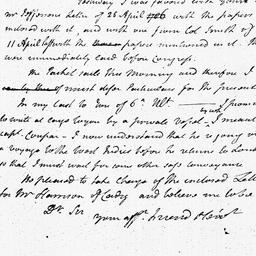 Yesterday I was favored with yours
Mr Jefferson Letter of 28 April 1786 with the papers
inclosed with it, and with one from Col Smith of
11 April last with the papers mentioned in it. They
were immediately laid before Congress.
The Packet sails this Morning and therefore I
must defer Particulars for the present
In my last to you of 6th Ult. I promised
to write at large to you by a private vessel — I meant
I now understand that he is going on
a voyage to the West Indies before he returns to London
so that I must wait for some other safe conveyance
Be pleased to take charge of the enclosed Letter
for Mr Harrison of Cadiz and believe me to be
Dr Sir
your affte Friend &